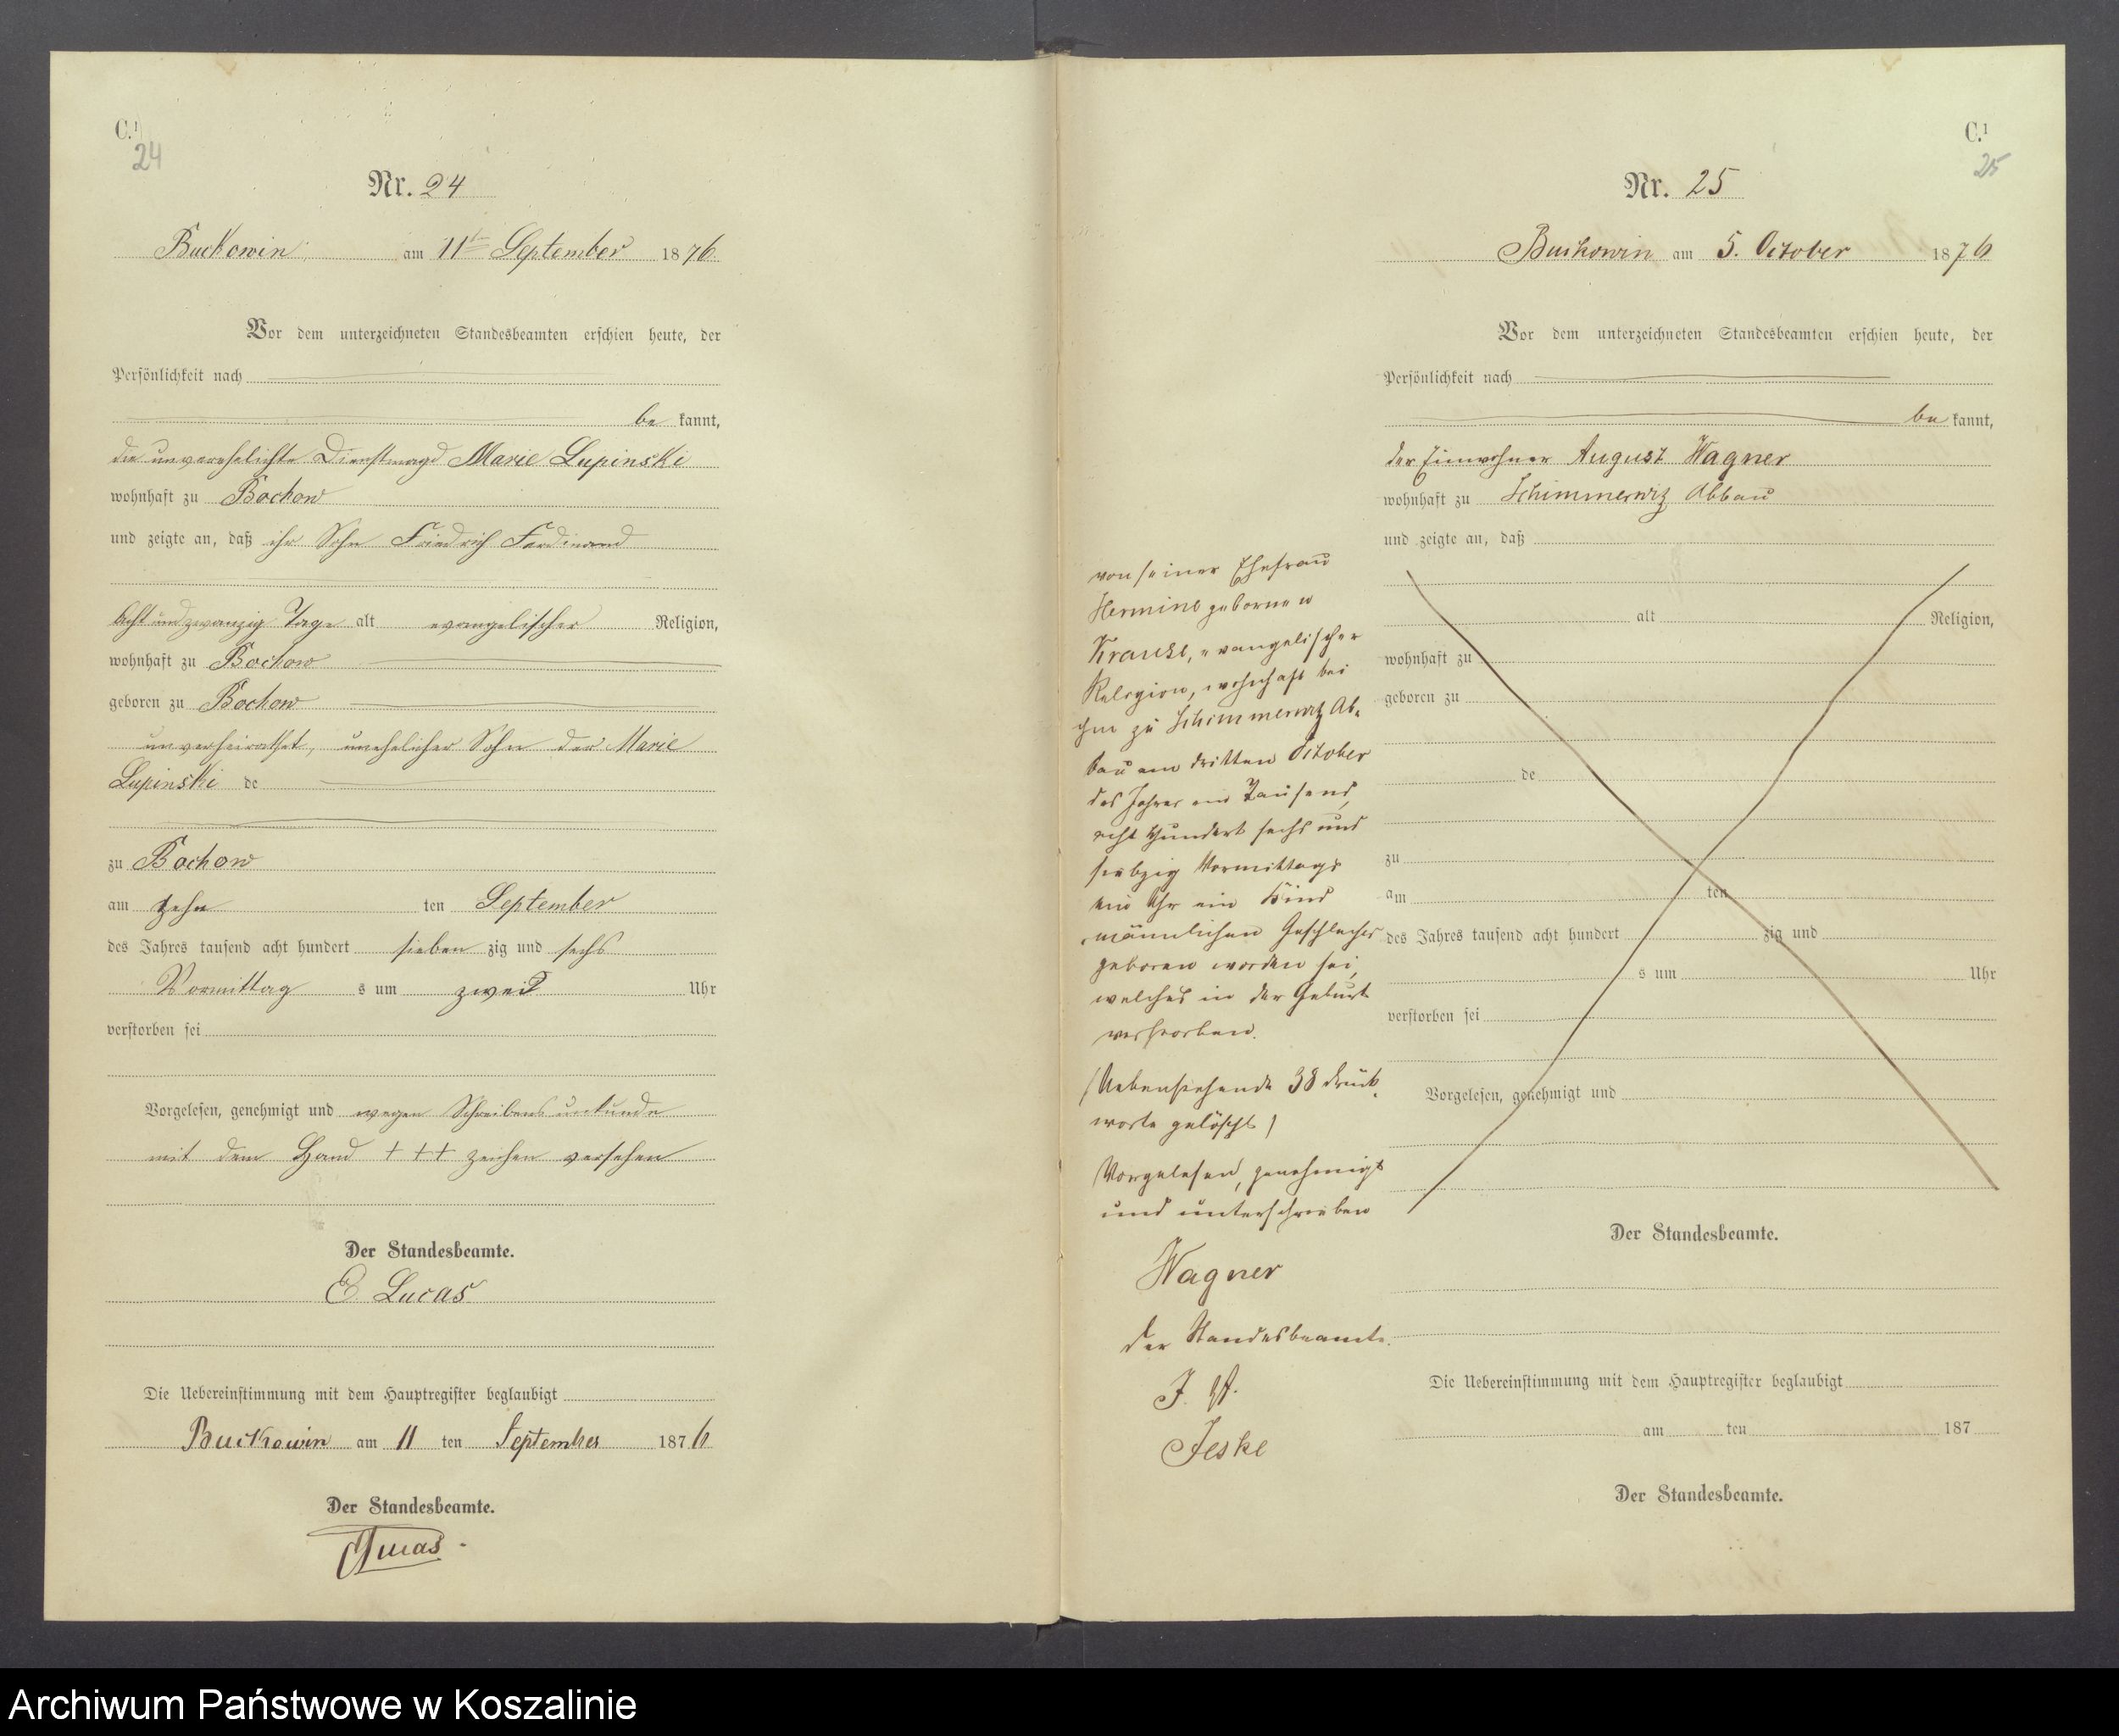 C.1
24
Nr. 24
Buckowin am 11ten September 1876.
Vor dem unterzeichneten Standesbeamten erschien heute, der
Persönlichkeit nach
be kannt,
die unverehelichte Dienstmagd Marie Lupinski
wohnhaft zu Bochow
und zeigte an, daß ihr Sohn Friedrich Ferdinand
Acht und zwanzig Tage alt evangelischer Religion,
wohnhaft zu Bochow
geboren zu Bochow
unverheirathet, unehelicher Sohn der Marie
Lupinski de
zu Bochow
am zehn ten September
des Jahres tausend acht hundert sieben zig und sechs
Vormittag s um zwei Uhr
verstorben sei
Vorgelesen, genehmigt und wegen Schreibensunkunde
mit dem Hand +++ zeichen versehen
Der Standesbeamte.
E. Lucas
Die Uebereinstimmung mit dem Hauptregister beglaubigt
Buckowin am 11 ten September 1876
Der Standesbeamte.
Lucas.
C.1
25
Nr. 25
Buckowin am 5. October 1876
Vor dem unterzeichneten Standesbeamten erschien heute, der
Persönlichkeit nach
be kannt,
der Einwohner August Wagner
wohnhaft zu Schimmerwitz Abbau
und zeigte an, daß
alt Religion,
wohnhaft zu
geboren zu
de
zu
am ten
des Jahres tausend acht hundert zig und
s um Uhr
verstorben sei
Vorgelesen, genehmigt und
Der Standesbeamte.
Die Uebereinstimmung mit dem Hauptregister beglaubigt
am ten 187
Der Standesbeamte.
von seiner Ehefrau
Hermine geborenen
Krause, evangelischer
Religion, wohnhaft bei
ihm zu Schimmerwitz Ab-
bau am dritten October
des Jahres ein Tausend,
acht Hundert sechs und
siebzig Vormittags
ein Uhr ein Kind
männlichen Geschlechts
geboren worden sei,
welches in der Geburt
verstorben.
(Nebenstehende 38 Druck-
worte gelöscht)
Vorgelesen, genehmigt
und unterschrieben
Wagner
Der Standesbeamte.
J. V.
Jeske
Archiwum Państwowe w Koszalinie